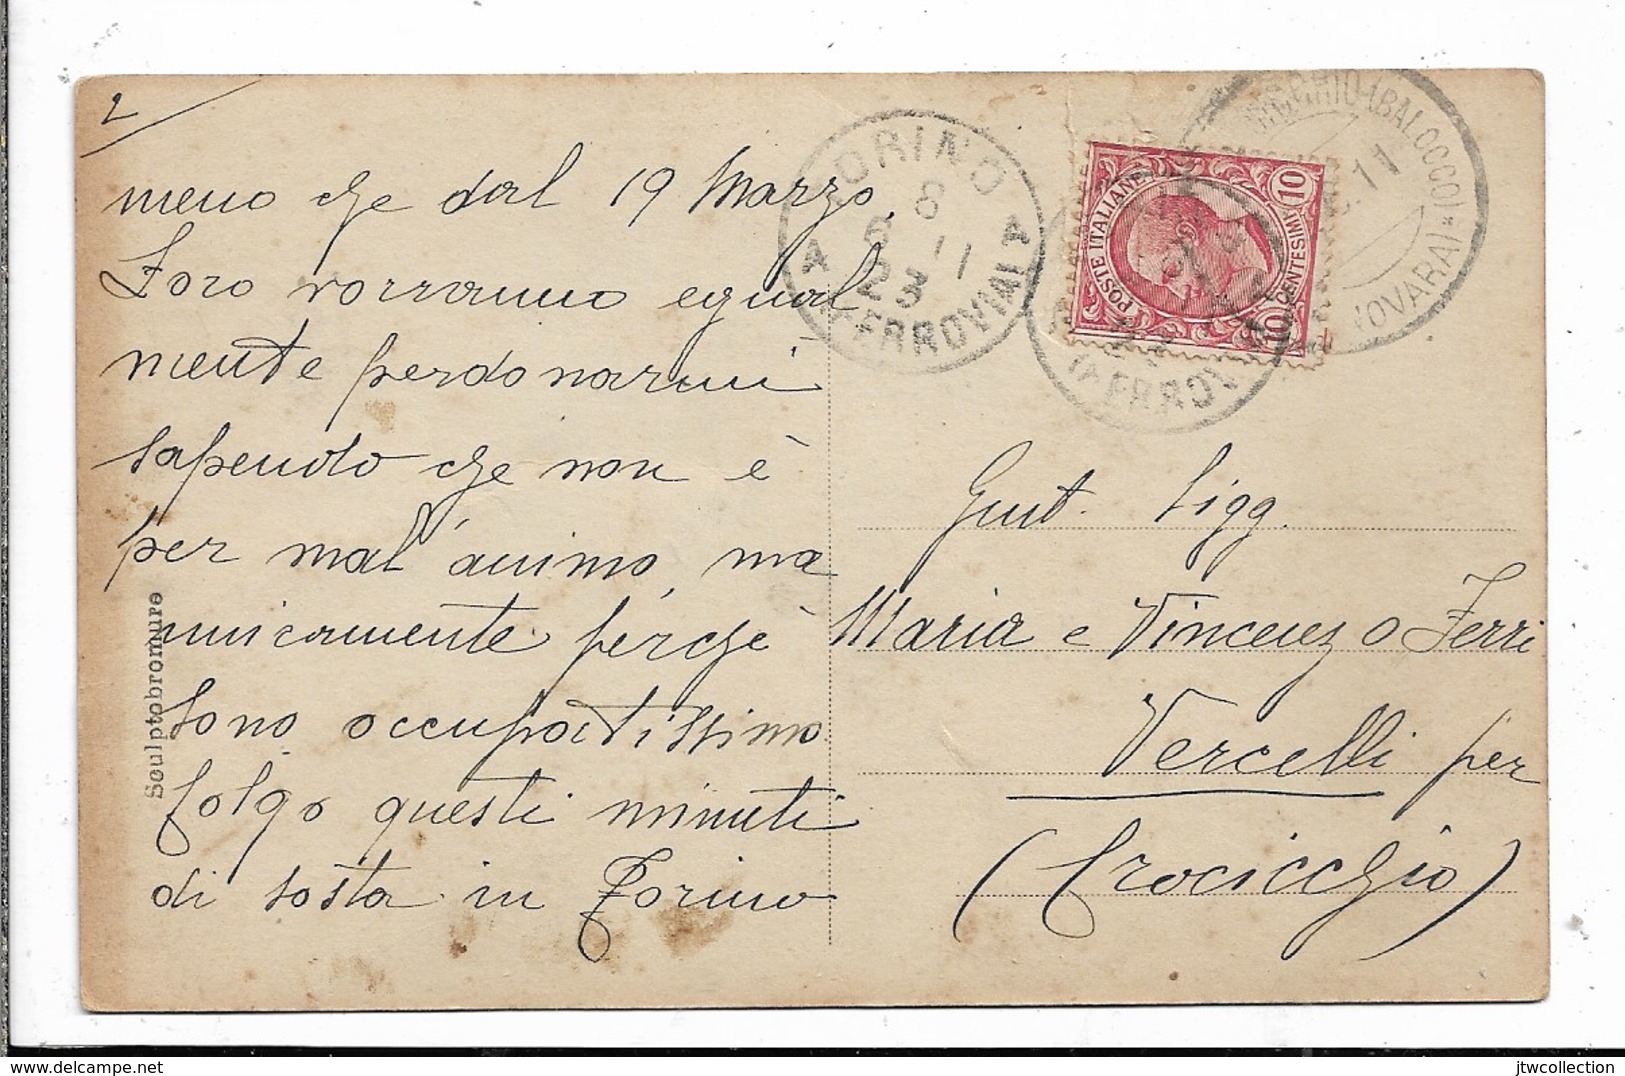 2
meno che dal 19 Marzo.
Loro vorranno egual
mente perdonarmi
sapendo che non è
per mal'animo, ma
unicamente perchè
sono occupatissimo
Colgo questi minuti
di sosta in Torino
Sculptobromure
TORINO
8
6 11
23
A FERROVIA A
POSTE ITALIANE
10 CENTESIMI 10
(BALOCCO)
(NOVARA)
11
FERROV
Gent. Sigg.
Maria e Vincenzo Ferri
Vercelli per
(Crocicchio)
jtwcollection